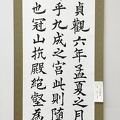 貞觀六年孟夏之月
乎九成之宮此則隨
也冠山抗殿絶壑為